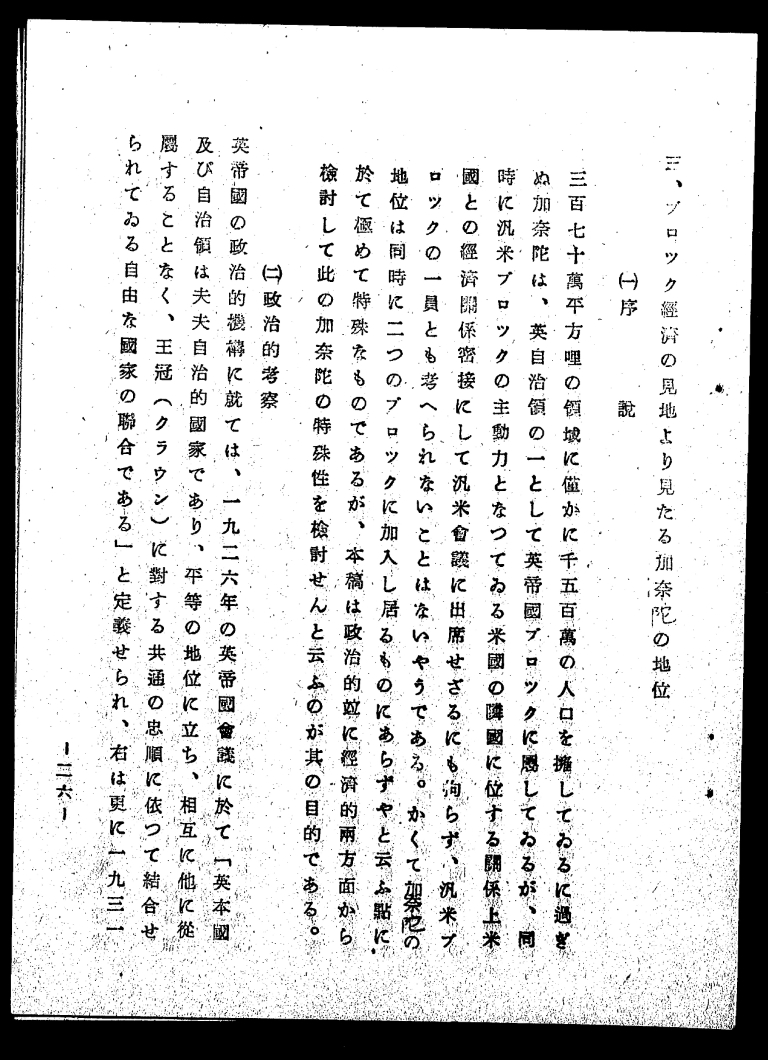 三、ブロツク經濟の見地より見たる加奈陀の地位
㈠序　　說
三百七十萬平方哩の領域に僅かに千五百萬の人口を擁してゐるに過ぎ
ぬ加奈陀は、英自治領の一として英帝國ブロツクに屬してゐるが、同
時に汎米ブロツクの主動力となつてゐる米國の隣國に位する關係上米
國との經濟關係密接にして汎米會議に出席せざるにも拘らず、汎米ブ
ロツクの一員とも考へられないことはないやうである。かくて加奈陀の
地位は同時に二つのブロツクに加入し居るものにあらずやと云ふ點に
於て極めて特殊なものであるが、本稿は政治的竝に經濟的兩方面から
檢討して此の加奈陀の特殊性を檢討せんと云ふのが其の目的である。
㈡政治的考察
英帝國の政治的機構に就ては、一九二六年の英帝國會議に於て「英本國
及び自治領は夫夫自治的國家であり、平等の地位に立ち、相互に他に從
屬することなく、王冠（クラウン）に對する共通の忠順に依つて結合せ
られてゐる自由な國家の聯合である」と定義せられ、右は更に一九三一
－二六－